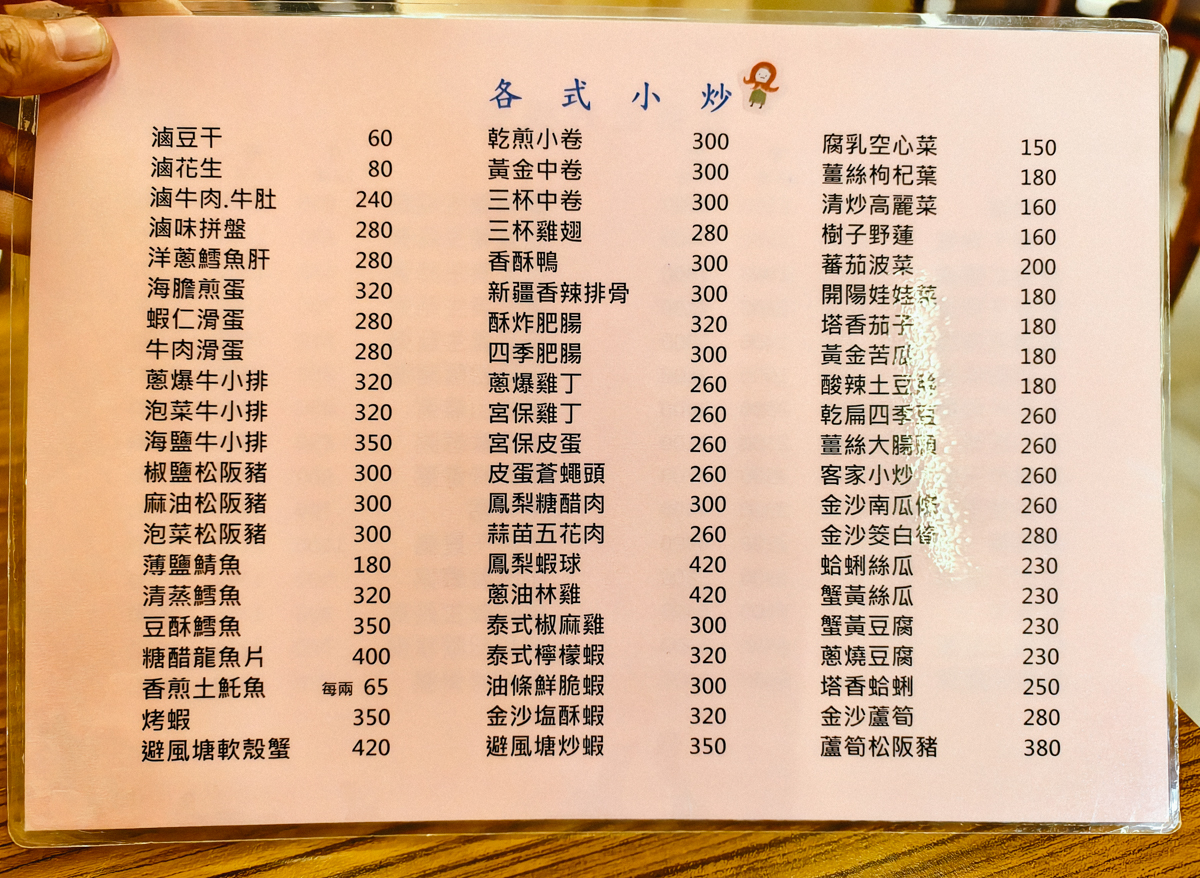 各式小炒
滷豆干 60
滷花生 80
滷牛肉.牛肚 240
滷味拼盤 280
洋蔥鱈魚肝 280
海膽煎蛋 320
蝦仁滑蛋 280
牛肉滑蛋 280
蔥爆牛小排 320
泡菜牛小排 320
海鹽牛小排 350
椒鹽松阪豬 300
麻油松阪豬 300
泡菜松阪豬 300
薄鹽鯖魚 180
清蒸鱈魚 320
豆酥鱈魚 350
糖醋龍魚片 400
香煎土魠魚 每兩 65
烤蝦 350
避風塘軟殼蟹 420
乾煎小卷 300
黃金中卷 300
三杯中卷 300
三杯雞翅 280
香酥鴨 300
新疆香辣排骨 300
酥炸肥腸 320
四季肥腸 300
蔥爆雞丁 260
宮保雞丁 260
宮保皮蛋 260
皮蛋蒼蠅頭 260
鳳梨糖醋肉 300
蒜苗五花肉 260
鳳梨蝦球 420
蔥油林雞 420
泰式椒麻雞 300
泰式檸檬蝦 320
油條鮮脆蝦 300
金沙塩酥蝦 320
避風塘炒蝦 350
腐乳空心菜 150
薑絲枸杞葉 180
清炒高麗菜 160
樹子野蓮 160
蕃茄波菜 200
開陽娃娃菜 180
塔香茄子 180
黃金苦瓜 180
酸辣土豆絲 180
乾扁四季豆 260
薑絲大腸頭 260
客家小炒 260
金沙南瓜條 260
金沙筊白筍 280
蛤蜊絲瓜 230
蟹黃絲瓜 230
蟹黃豆腐 230
蔥燒豆腐 230
塔香蛤蜊 250
金沙蘆筍 280
蘆筍松阪豬 380